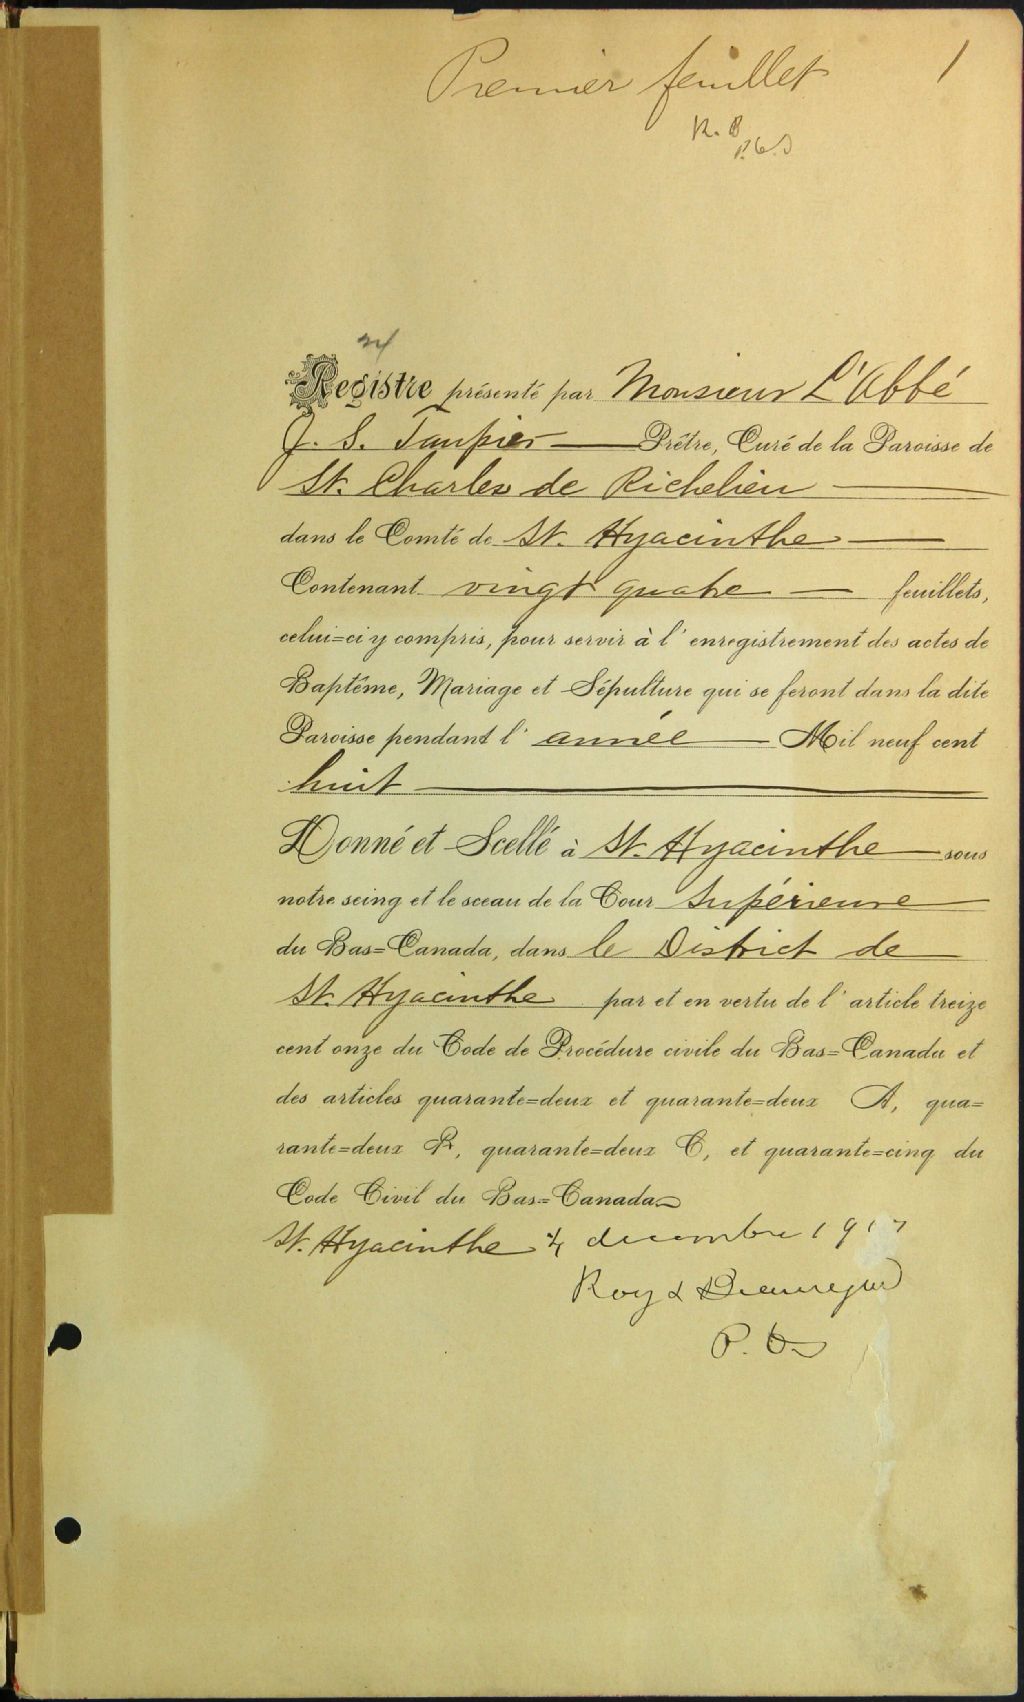 Premier feuillet 1
R. B
P.C.S
24
Registre présenté par Monsieur L'Abbé
J. S. Taupier Prêtre, Curé de la Paroisse de
St. Charles de Richelieu
dans le Comté de St. Hyacinthe
Contenant vingt quatre feuillets,
celui=ci y compris, pour servir à l'enregistrement des actes de
Baptême, Mariage et Sépulture qui se feront dans la dite
Paroisse pendant l'année Mil neuf cent
huit
Donné et Scellé à St. Hyacinthe sous
notre seing et le sceau de la Cour Supérieure
du Bas=Canada, dans le District de
St. Hyacinthe par et en vertu de l'article treize
cent onze du Code de Procédure civile du Bas=Canada et
des articles quarante=deux et quarante=deux A, qua=
rante=deux B, quarante=deux C, et quarante=cinq du
Code Civil du Bas=Canada
St. Hyacinthe 4 decembre 1907
Roy & Beauregard
P.C.S